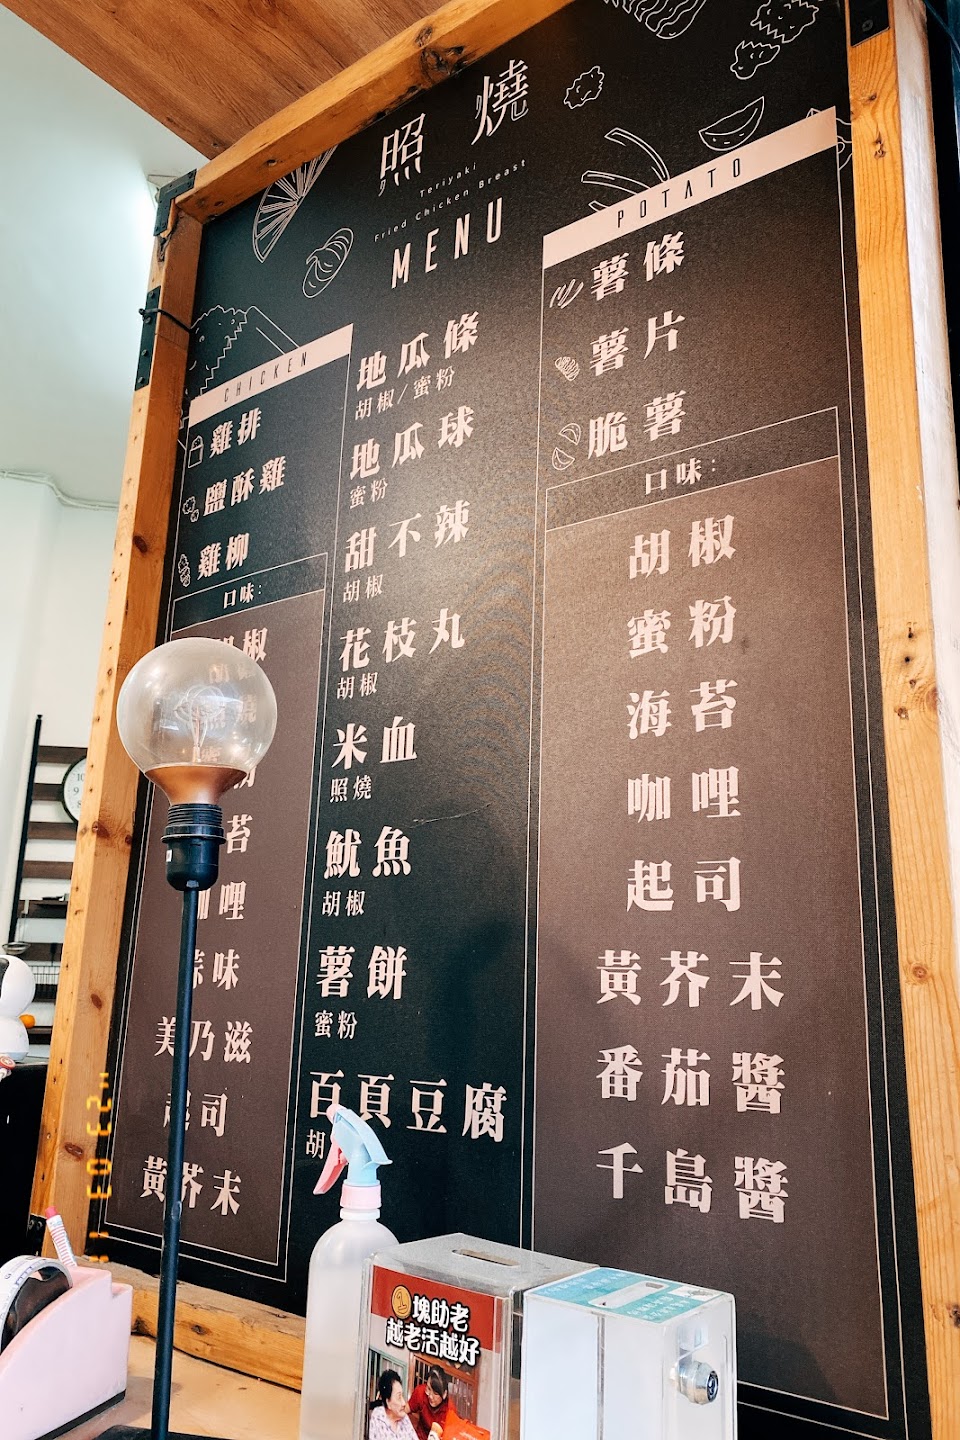 照燒
Teriyaki
Fried Chicken Breast
MENU
CHICKEN
雞排
鹽酥雞
雞柳
口味：
胡椒
照燒
苔
咖哩
蒜味
美乃滋
起司
黃芥末
地瓜條
胡椒/蜜粉
地瓜球
蜜粉
甜不辣
胡椒
花枝丸
胡椒
米血
照燒
魷魚
胡椒
薯餅
蜜粉
百頁豆腐
胡
POTATO
薯條
薯片
脆薯
口味：
胡椒
蜜粉
海苔
咖哩
起司
黃芥末
番茄醬
千島醬
1塊助老
越老活越好
10
9
8
'23 03 11